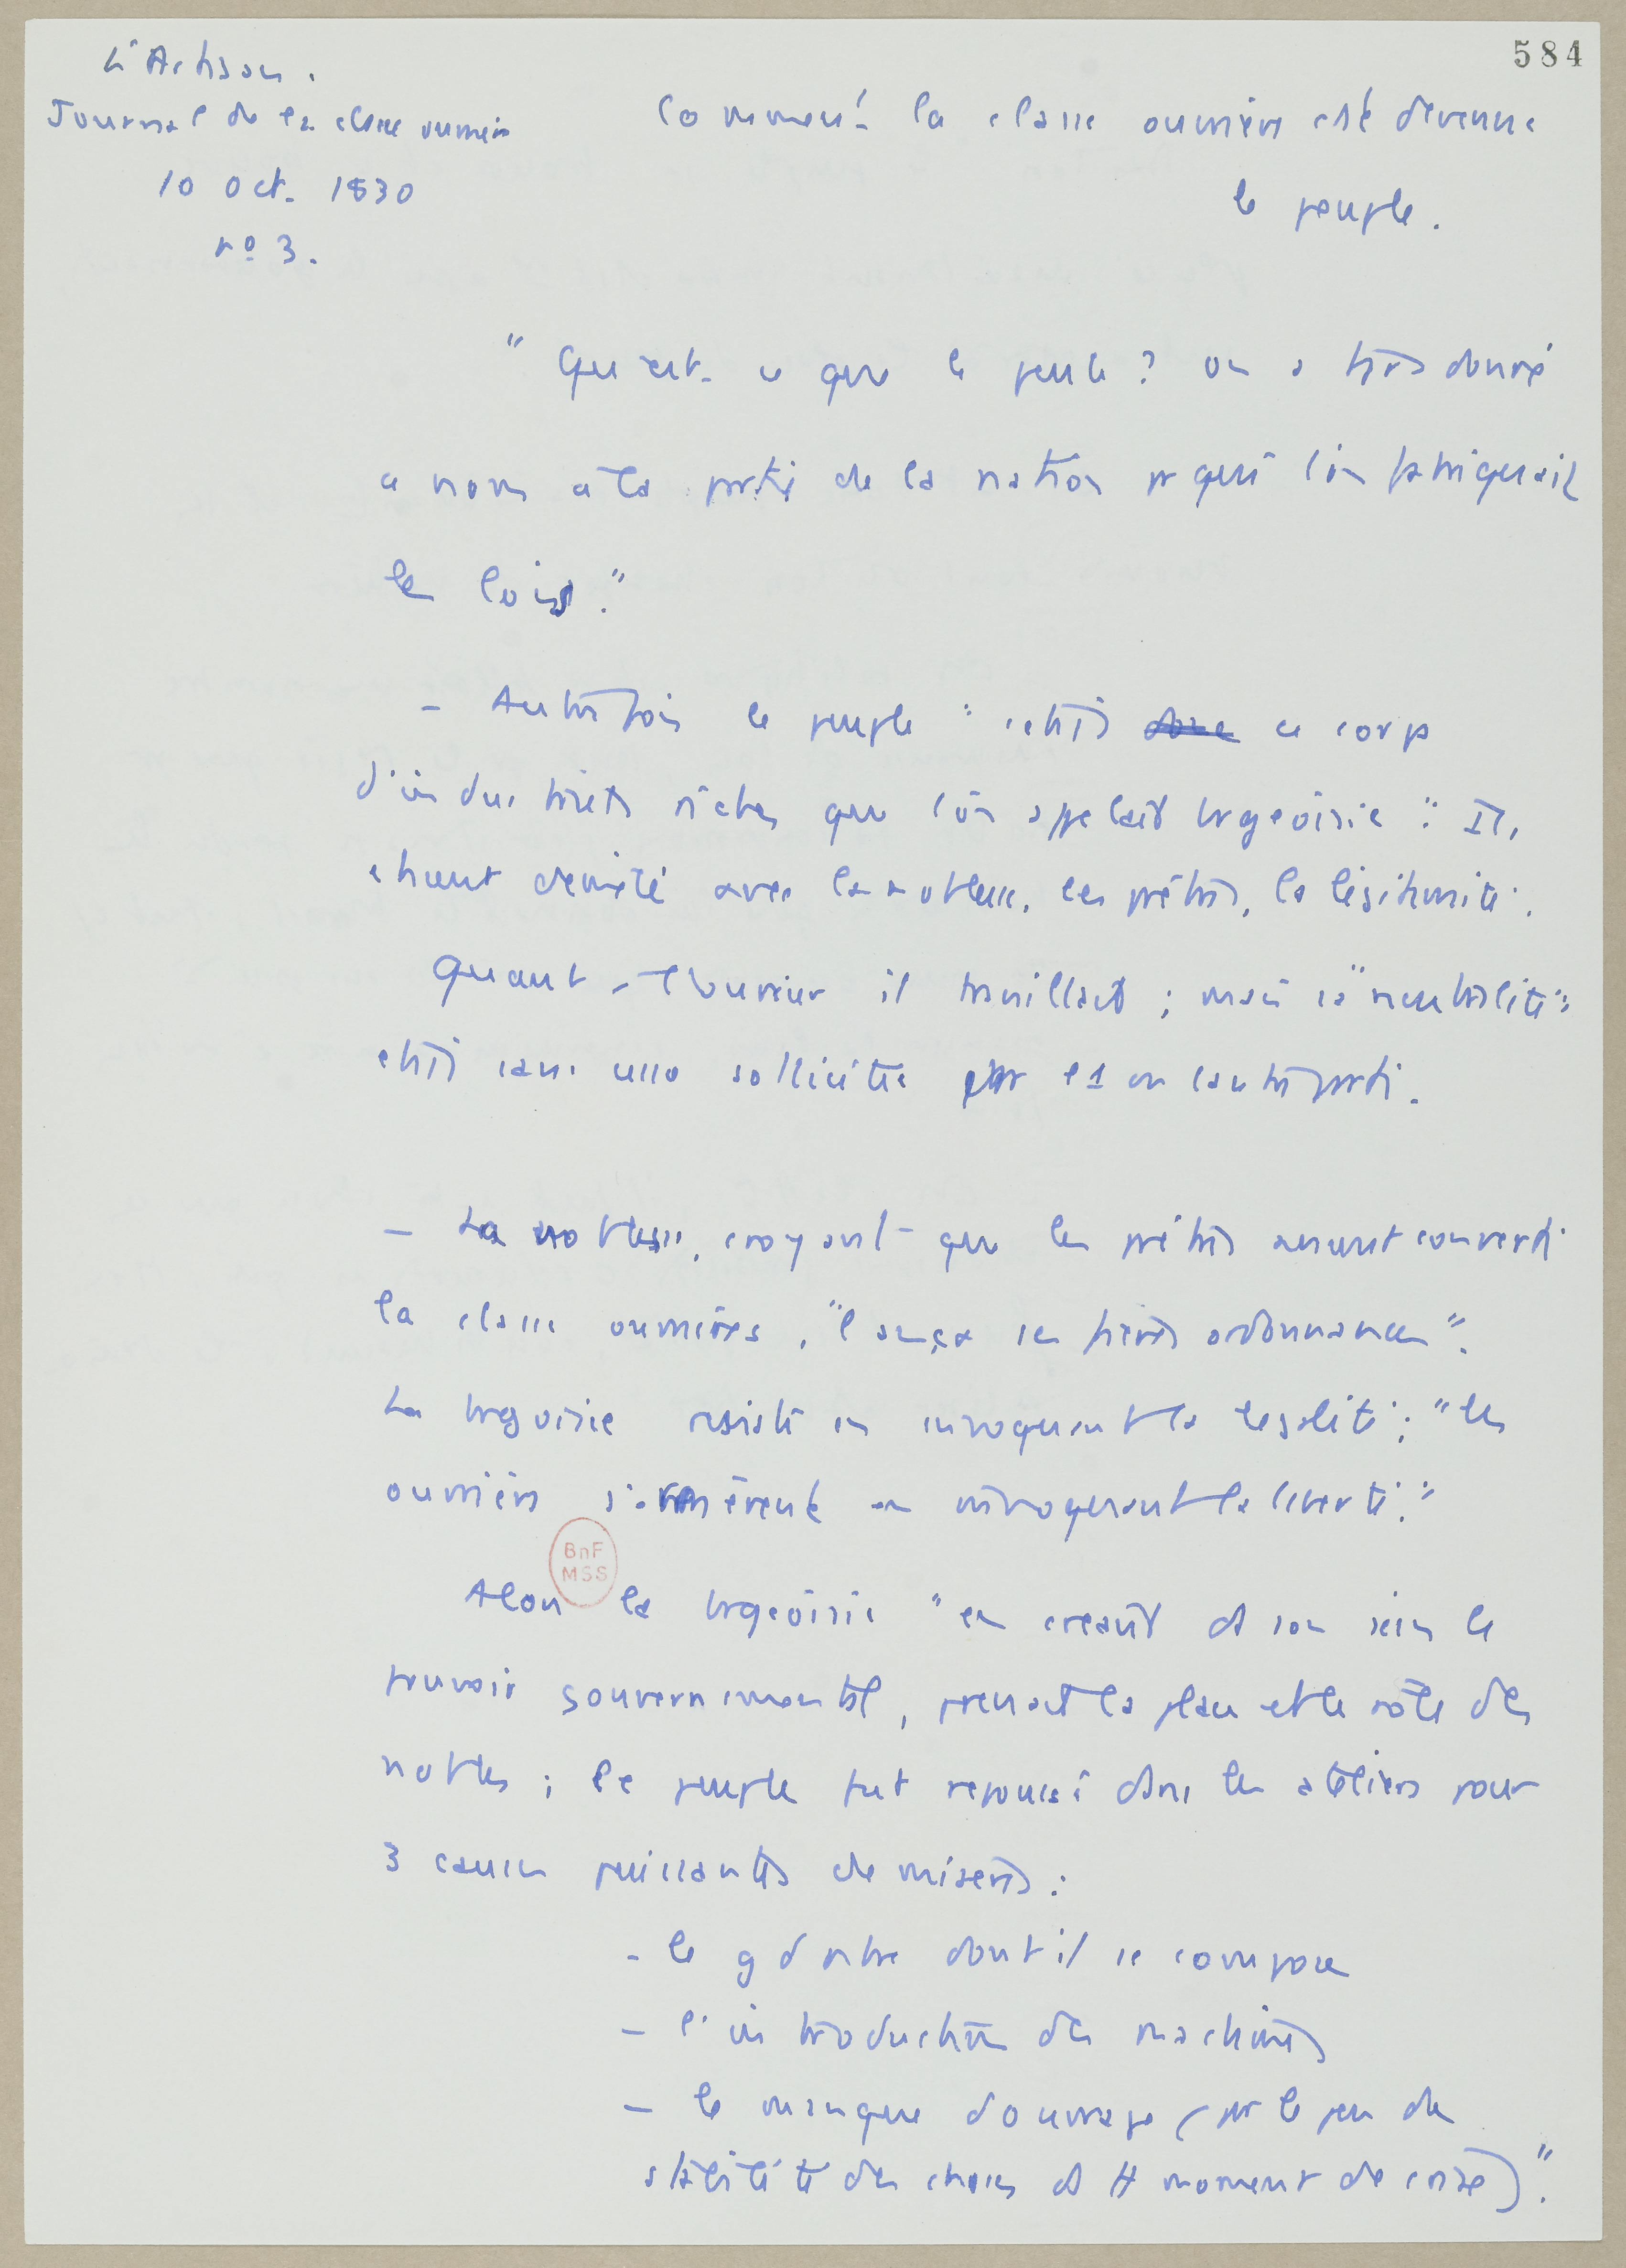 584
L'Artisan.
Journal de la classe ouvrière
10 Oct. 1830
no 3.
Comment la classe ouvrière est devenue
le peuple.
" Qu'est-ce que le peuple ? On a tjrs donné
ce nom à la partie de la nation pr qui l'on fabriquait
les lois."
- Autrefois le peuple "c'était ce corps
d'industriels riches que l'on appelait bourgeoisie". Ils
étaient en avec la noblesse, les prêtres, la légitimité.
Quant à l'ouvrier il travaillait ; mais sa "neutralité"
était sans cesse sollicitée par l'1 ou l'autre parti.
- La noblesse, croyant que les prêtres auraient converti
la classe ouvrière, "lança ses fières ordonnances".
La bourgeoisie résista en invoquant la légalité ; "les
ouvriers s'armèrent en invoquant la liberté."
Alors la bourgeoisie "en créant ds son sein le
pouvoir gouvernemental, prenait la place et le rôle des
nobles ; le peuple fut repoussé dans les ateliers pour
3 causes puissantes de misères :
- le gd nbre dont il se compose
- l'introduction des machines
- le manque d'ouvrage (par le peu de
stabilité des choses ds tt moment de crise)."
BnF
MSS